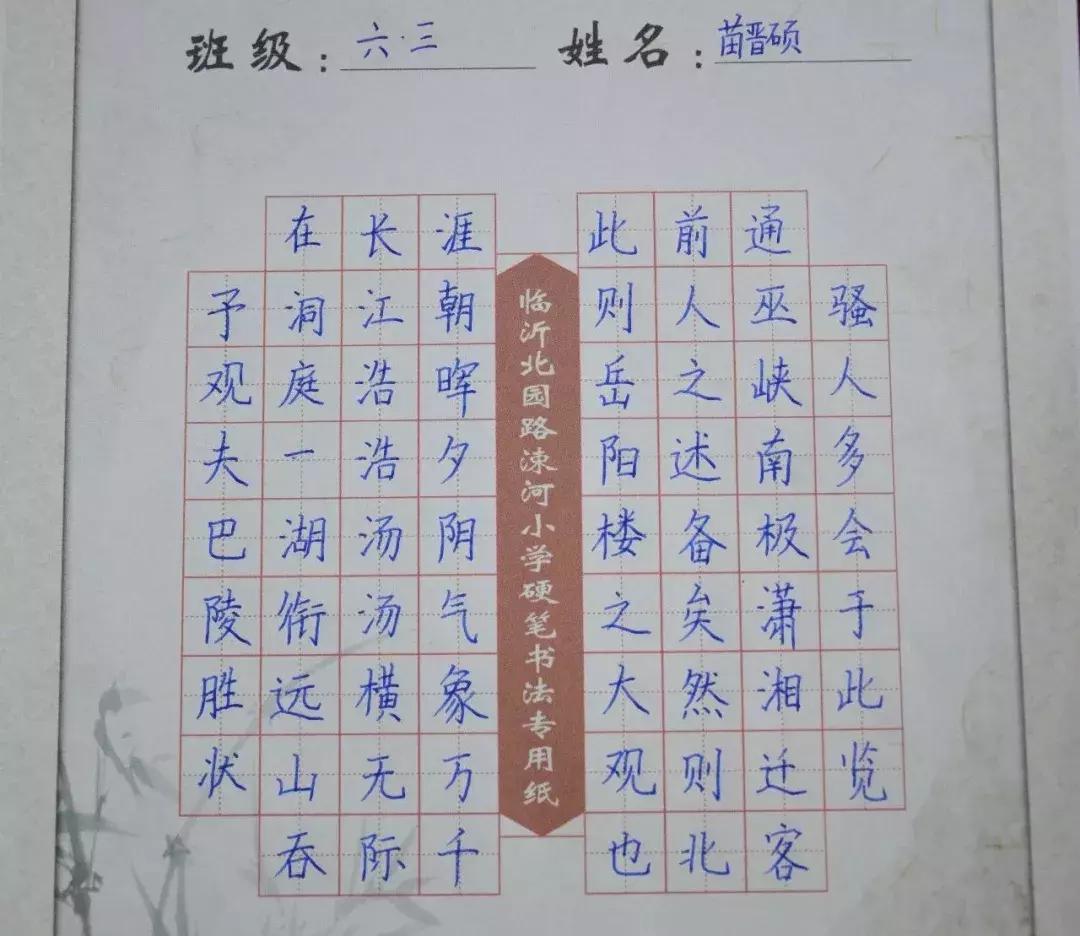 班级：六·三
姓名：苗晋硕
予观夫巴陵胜状
在洞庭一湖衔远山吞
长江浩浩汤汤横无际
涯朝晖夕阴气象万千
临沂北园路涑河小学硬笔书法专用纸
此则岳阳楼之大观也
前人之述备矣然则北
通巫峡南极潇湘迁客
骚人多会于此览